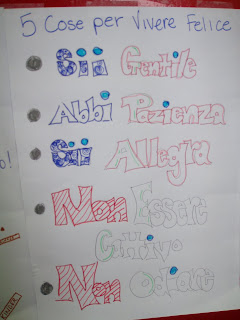 5 Cose per Vivere Felice
Sii Gentile
Abbi Pazienza
Sii Allegra
Non Essere
Cattivo
Non Odiare